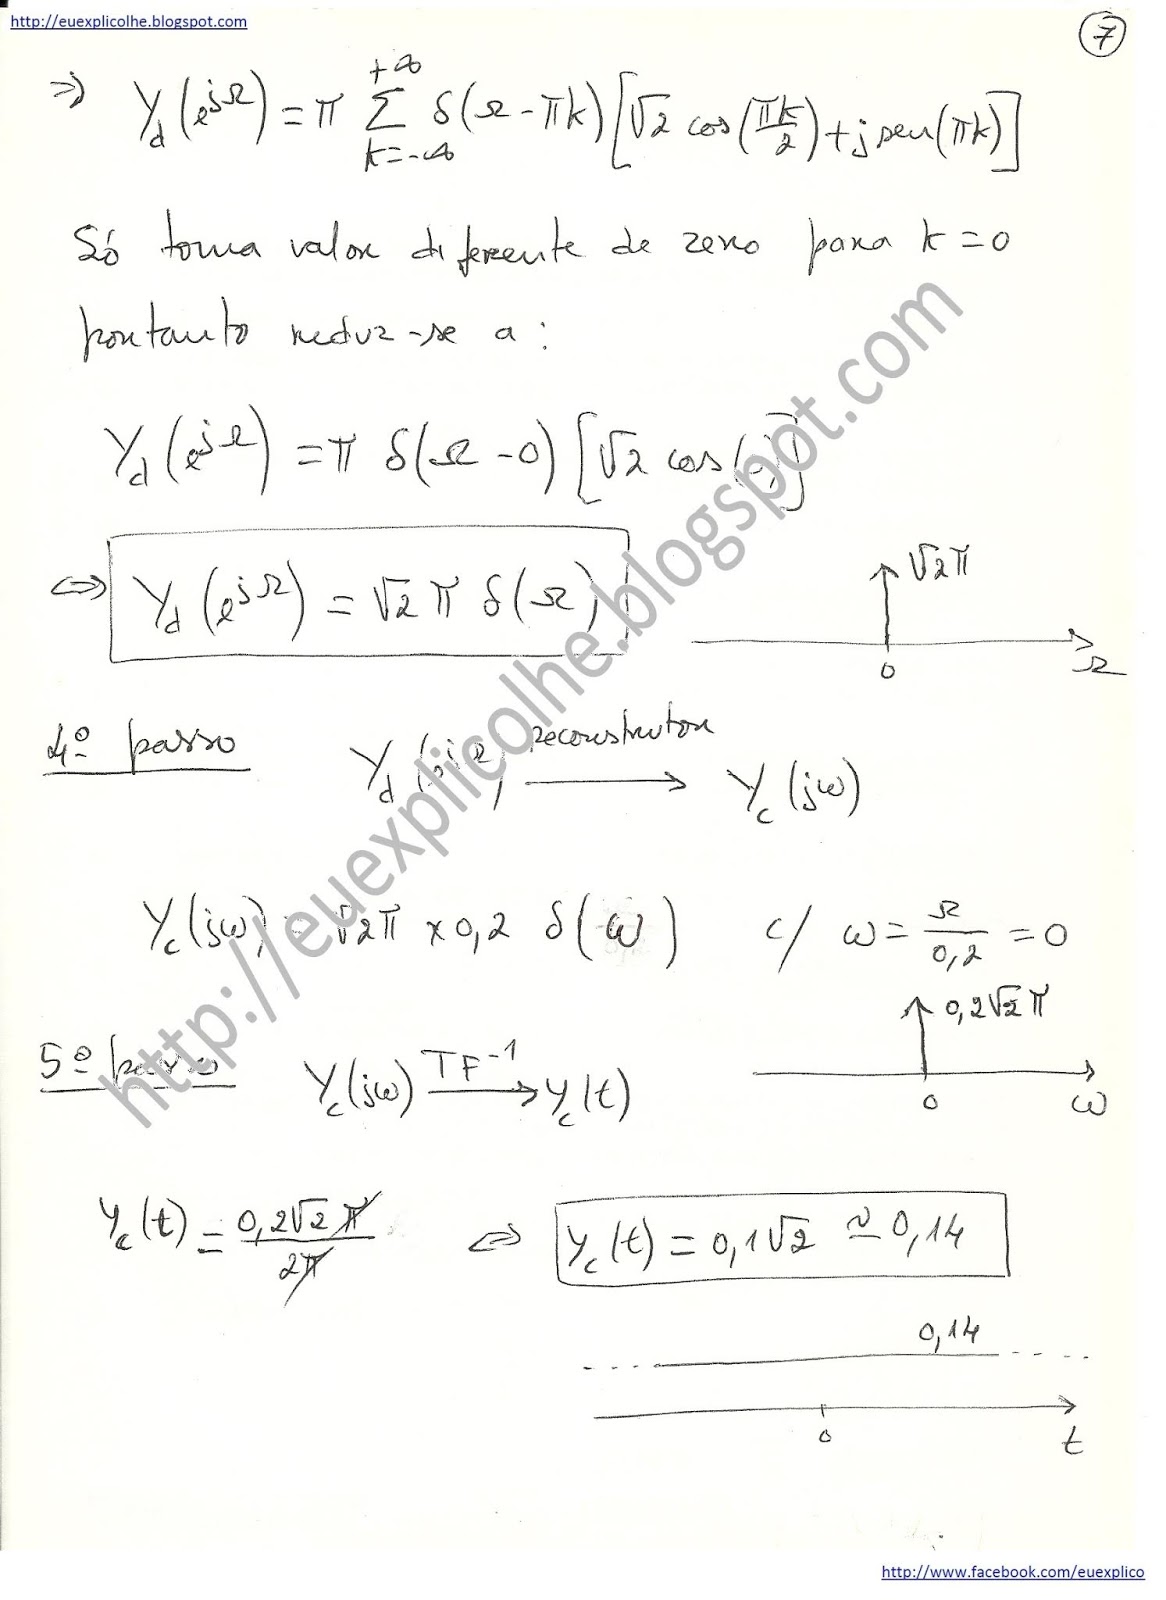 http://euexplicolhe.blogspot.com
7
⇒ Y_d(e^{jΩ}) = π Σ_{k=-∞}^{+∞} δ(Ω - πk) [√2 cos(πk/2) + j sen(πk)]
Só toma valor diferente de zero para k = 0
portanto reduz-se a:
Y_d(e^{jΩ}) = π δ(Ω - 0) [√2 cos(0)]
⇔ Y_d(e^{jΩ}) = √2 π δ(Ω)
√2π
0
Ω
4º passo Y_d(e^{jΩ}) reconstrutor → Y_c(jω)
Y_c(jω) = √2π × 0,2 δ(ω) c/ ω = Ω/0,2 = 0
0,2√2π
0
ω
5º passo Y_c(jω) TF^{-1} → y_c(t)
y_c(t) = 0,2√2π/2π ⇔ y_c(t) = 0,1√2 ≃ 0,14
0,14
0
t
http://euexplicolhe.blogspot.com
http://www.facebook.com/euexplico